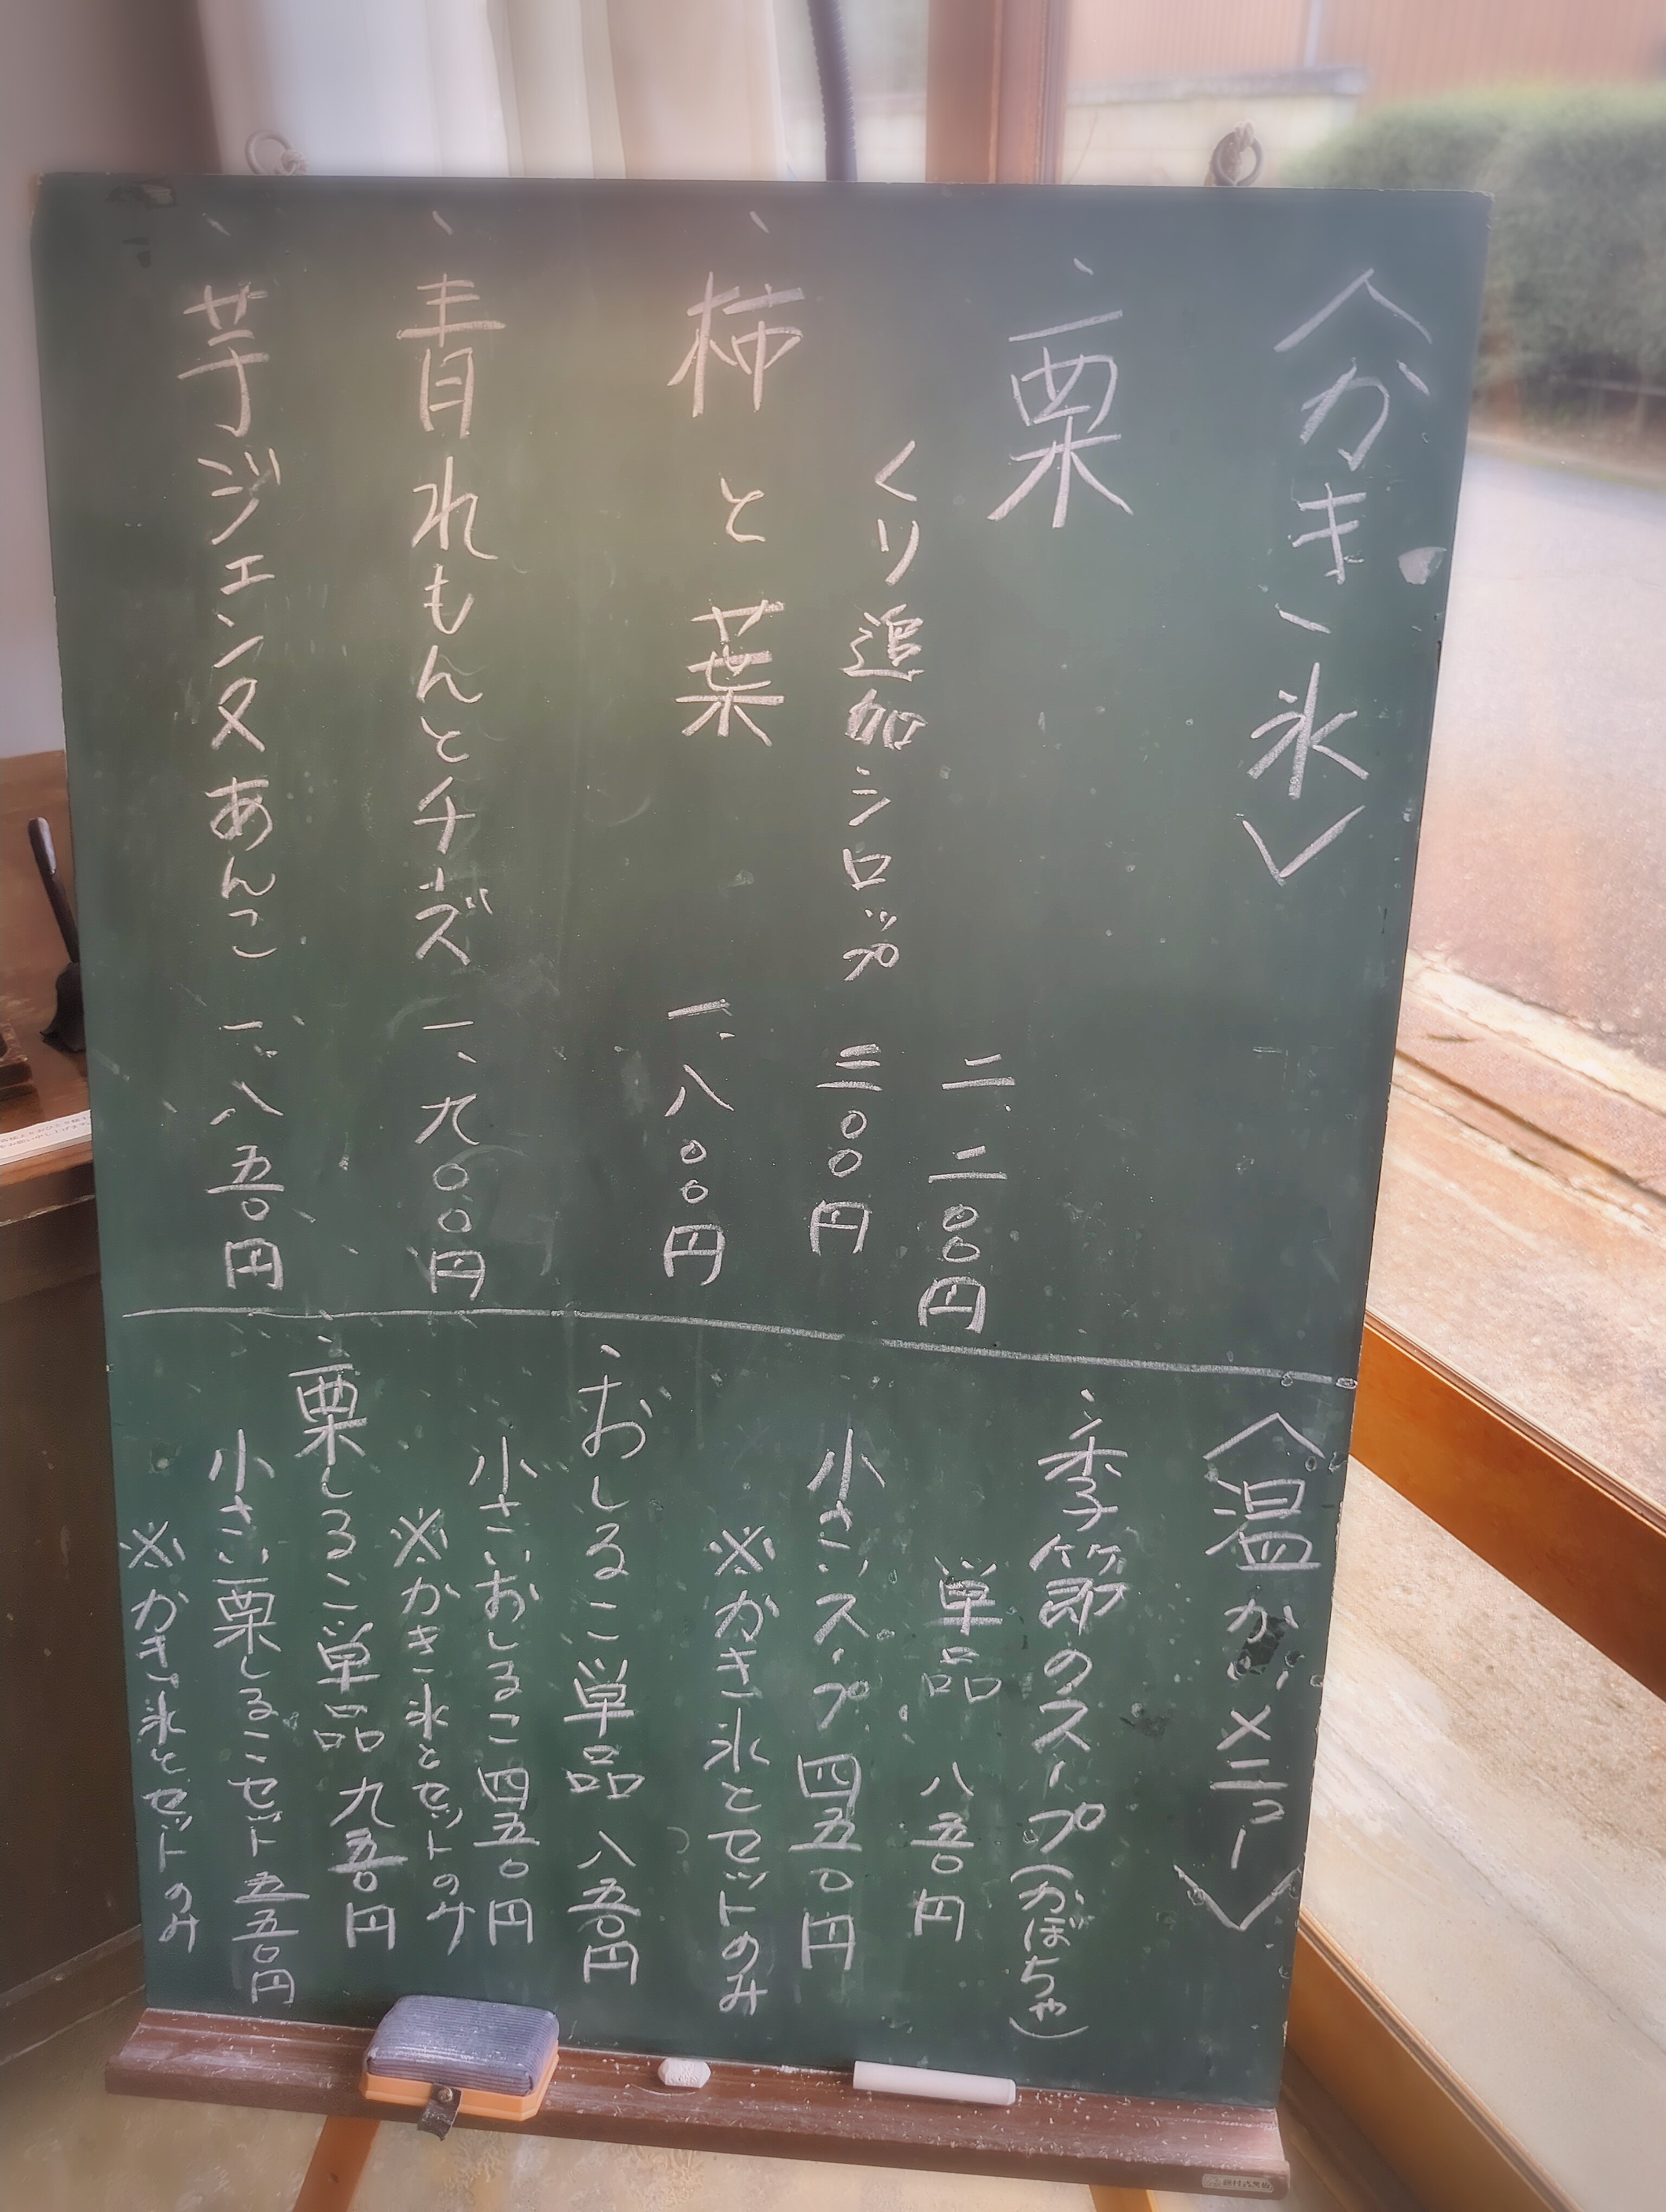 〈かき氷〉
、栗
二、二〇〇円
くり追加シロップ 三〇〇円
、柿と葉 一、八〇〇円
、青れもんとチーズ 一、九〇〇円
、芋ジェンヌあんこ 一、八五〇円
〈温かいメニュー〉
、季節のスープ(かぼちゃ)
単品 八五〇円
小さいスープ 四五〇円
※かき氷とセットのみ
、おしるこ単品 八五〇円
小さいおしるこ 四五〇円
※かき氷とセットのみ
、栗しるこ単品 九五〇円
小さい栗しるこセット 五五〇円
※かき氷とセットのみ